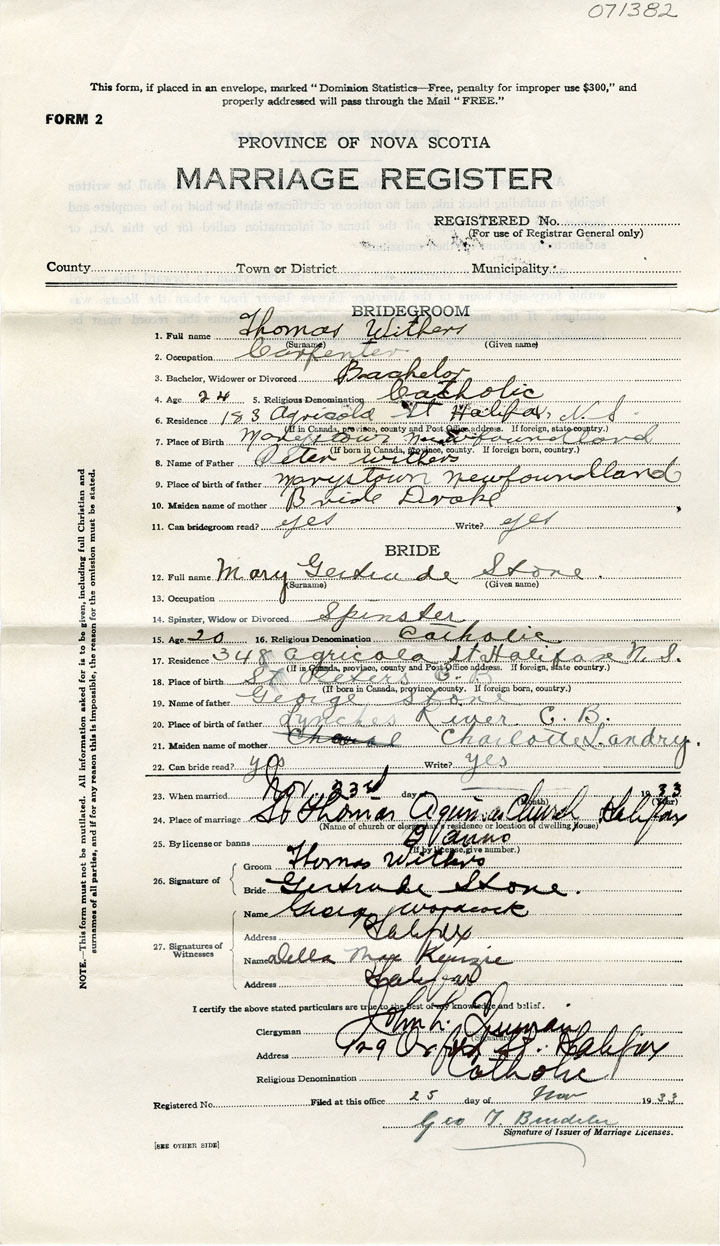 071382
This form, if placed in an envelope, marked "Dominion Statistics—Free, penalty for improper use $300," and
properly addressed will pass through the Mail "FREE."
FORM 2
PROVINCE OF NOVA SCOTIA
MARRIAGE REGISTER
REGISTERED No.
(For use of Registrar General only)
County Town or District Municipality
BRIDEGROOM
1. Full name Thomas Withers
(Surname) (Given name)
2. Occupation Carpenter
3. Bachelor, Widower or Divorced Bachelor
4. Age 24 5. Religious Denomination Catholic
6. Residence 183 Agricola St Halifax N.S.
(If in Canada, province, county and Post Office address. If foreign, state country.)
7. Place of Birth Marystown Newfoundland
(If born in Canada, province, county. If foreign born, country.)
8. Name of Father Peter Withers
9. Place of birth of father Marystown Newfoundland
10. Maiden name of mother Bride Drake
11. Can bridegroom read? yes Write? yes
BRIDE
12. Full name Mary Gertrude Stone.
(Surname) (Given name)
13. Occupation
14. Spinster, Widow or Divorced Spinster
15. Age 20 16. Religious Denomination Catholic
17. Residence 348 Agricola St Halifax N.S.
(If in Canada, province, county and Post Office address. If foreign, state country.)
18. Place of birth St Peters C.B
(If born in Canada, province, county. If foreign born, country.)
19. Name of father George Stone
20. Place of birth of father Lynches River C.B.
21. Maiden name of mother Charlotte Landry.
22. Can bride read? yes Write? yes
23. When married Nov. 23rd day 1933
(Month) (Year)
24. Place of marriage St Thomas Aquinas Church Halifax
(Name of church or clergyman's residence or location of dwelling house)
25. By license or banns Banns
(If by license, give number.)
26. Signature of
Groom Thomas Withers
Bride Gertrude Stone.
27. Signatures of Witnesses
Name George
Address Halifax
Name Della Mac Kenzie
Address Halifax
I certify the above stated particulars are true to the best of my knowledge and belief.
Clergyman John L.
(Signature)
Address 129 Oxford St. Halifax
Religious Denomination Catholic
Registered No. Filed at this office 25 day of Nov 1933
Geo T.
Signature of Issuer of Marriage Licenses.
[SEE OTHER SIDE]
NOTE.—This form must not be mutilated. All information asked for is to be given, including full Christian and
surnames of all parties, and if for any reason this is impossible, the reason for the omission must be stated.